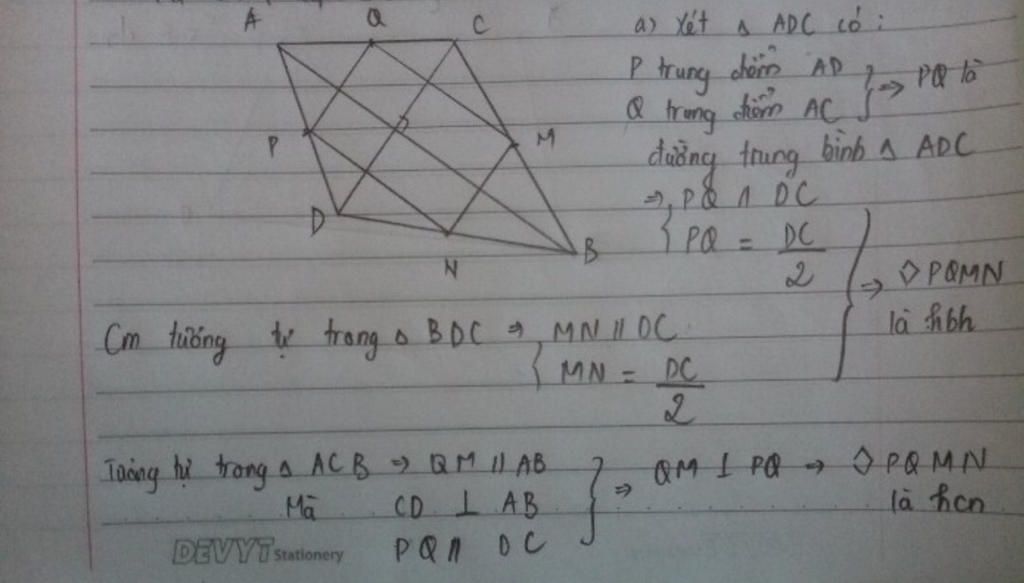 A Q C
P M
D N B
a) Xét △ ADC có:
P trung điểm AD
Q trung điểm AC } ⇒ PQ là
đường trung bình △ ADC
⇒ { PQ // DC
PQ = DC/2 } ⇒ ◇ PQMN là hbh
Cm tương tự trong △ BDC ⇒ { MN // DC
MN = DC/2
Tương tự trong △ ACB ⇒ QM // AB
Mà CD ⊥ AB
PQ // DC } ⇒ QM ⊥ PQ → ◇ PQMN
là hcn
DEVYT Stationery